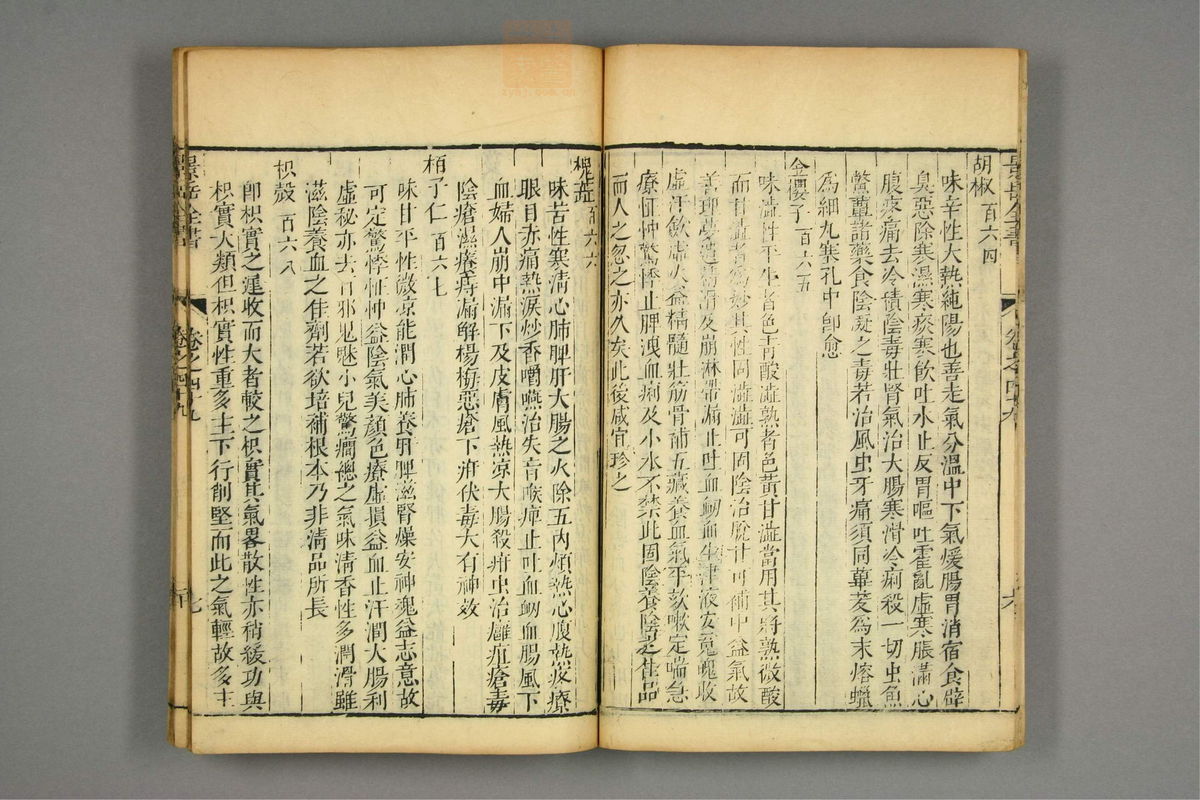 胡椒 百六四
味辛性大熱純陽也善走氣分溫中下氣煖腸胃消宿食辟
臭惡除寒濕寒痰寒飲吐水止反胃嘔吐霍亂虛寒脹滿心
腹疼痛去冷積陰毒壯腎氣治大腸寒滑冷痢殺一切虫魚
鱉蕈諸藥食陰凝之毒若治風虫牙痛須同蓽茇為末熔蠟
為細丸塞孔中即愈
金櫻子 百六五
味澁性平生者色青酸澁熟者色黃甘澁當用其將熟微酸
而甘澁者為妙其性固澁澁可固陰治脫甘可補中益氣故
善理夢遺精滑及崩淋帶漏止吐血衂血生津液安魂魄收
虛汗歛虛火益精髓壯筋骨補五藏養血氣平欬嗽定喘急
療怔忡驚悸止脾洩血痢及小水不禁此固陰養陰之佳品
而人之忽之亦久矣此後咸宜珍之
槐蕊 百六六
味苦性寒清心肺脾肝大腸之火除五內煩熱心腹熱疼療
眼目赤痛熱淚炒香嚼嚥治失音喉痺止吐血衂血腸風下
血婦人崩中漏下及皮膚風熱凉大腸殺疳虫治癰疽瘡毒
陰瘡濕癢痔漏解楊梅惡瘡下疳伏毒大有神效
栢子仁 百六七
味甘平性微凉能潤心肺養肝脾滋腎燥安神魂益志意故
可定驚悸怔忡益陰氣美顏色療虛損益血止汗潤大腸利
虛秘亦去百邪鬼魅小兒驚癇總之氣味清香性多潤滑雖
滋陰養血之佳劑若欲培補根本乃非清品所長
枳殼 百六八
即枳實之遲收而大者較之枳實其氣畧散性亦稍緩功與
枳實大類但枳實性重多主下行削堅而此之氣輕故多主
景岳全書
卷之四十九